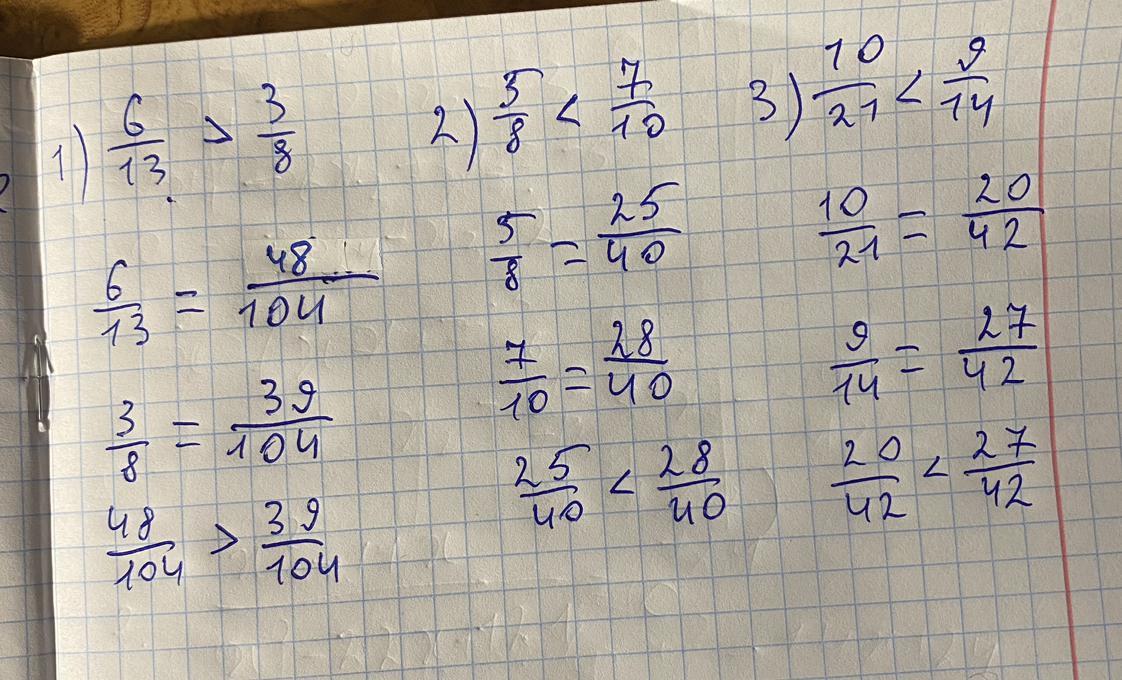 1) 6/13 > 3/8
6/13 = 48/104
3/8 = 39/104
48/104 > 39/104
2) 5/8 < 7/10
5/8 = 25/40
7/10 = 28/40
25/40 < 28/40
3) 10/21 < 9/14
10/21 = 20/42
9/14 = 27/42
20/42 < 27/42